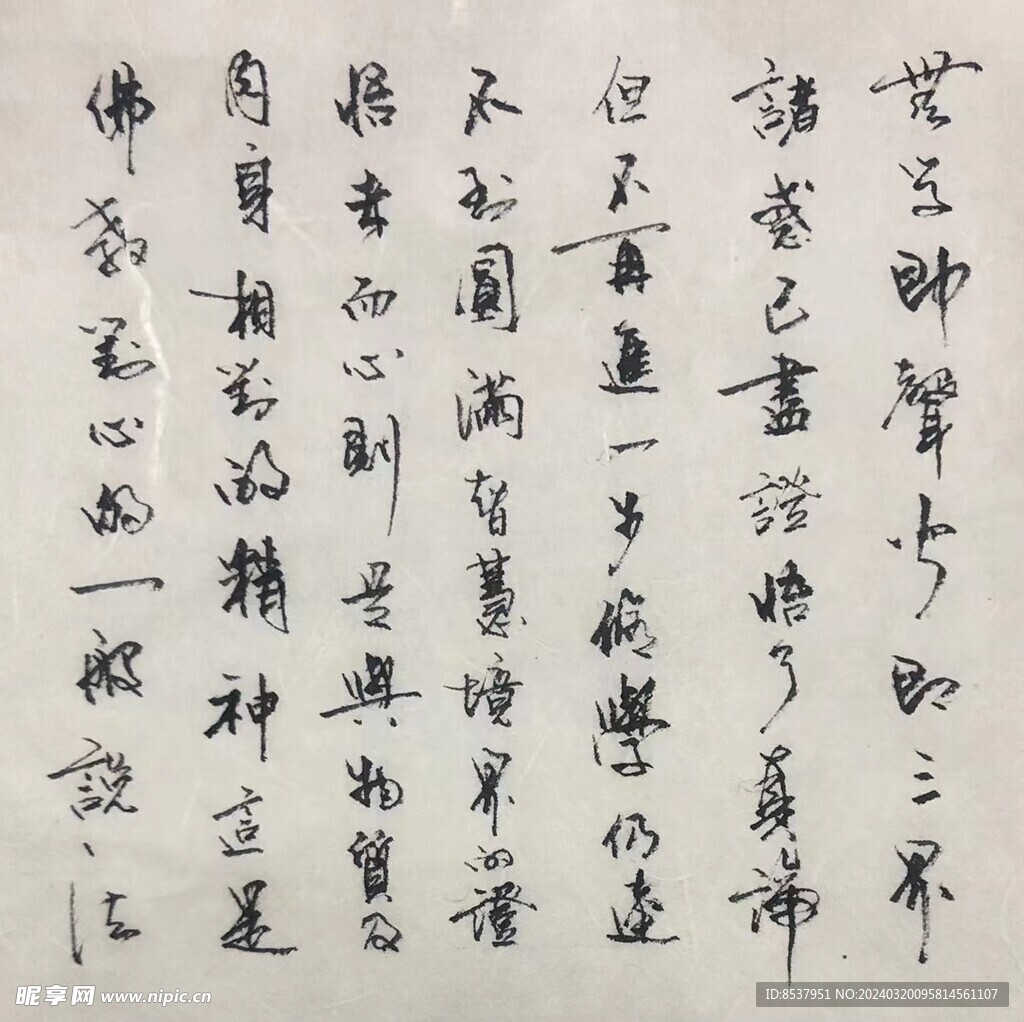 無學即聲聞即三界
諸惑已盡證悟了真論
但不再進一步修學仍達
不到圓滿智慧境界的證
悟者而心則是與物質及
肉身相對的精神這是
佛教對心的一般說、法
昵享网 www.nipic.cn
ID:8537951 NO:20240320095814561107